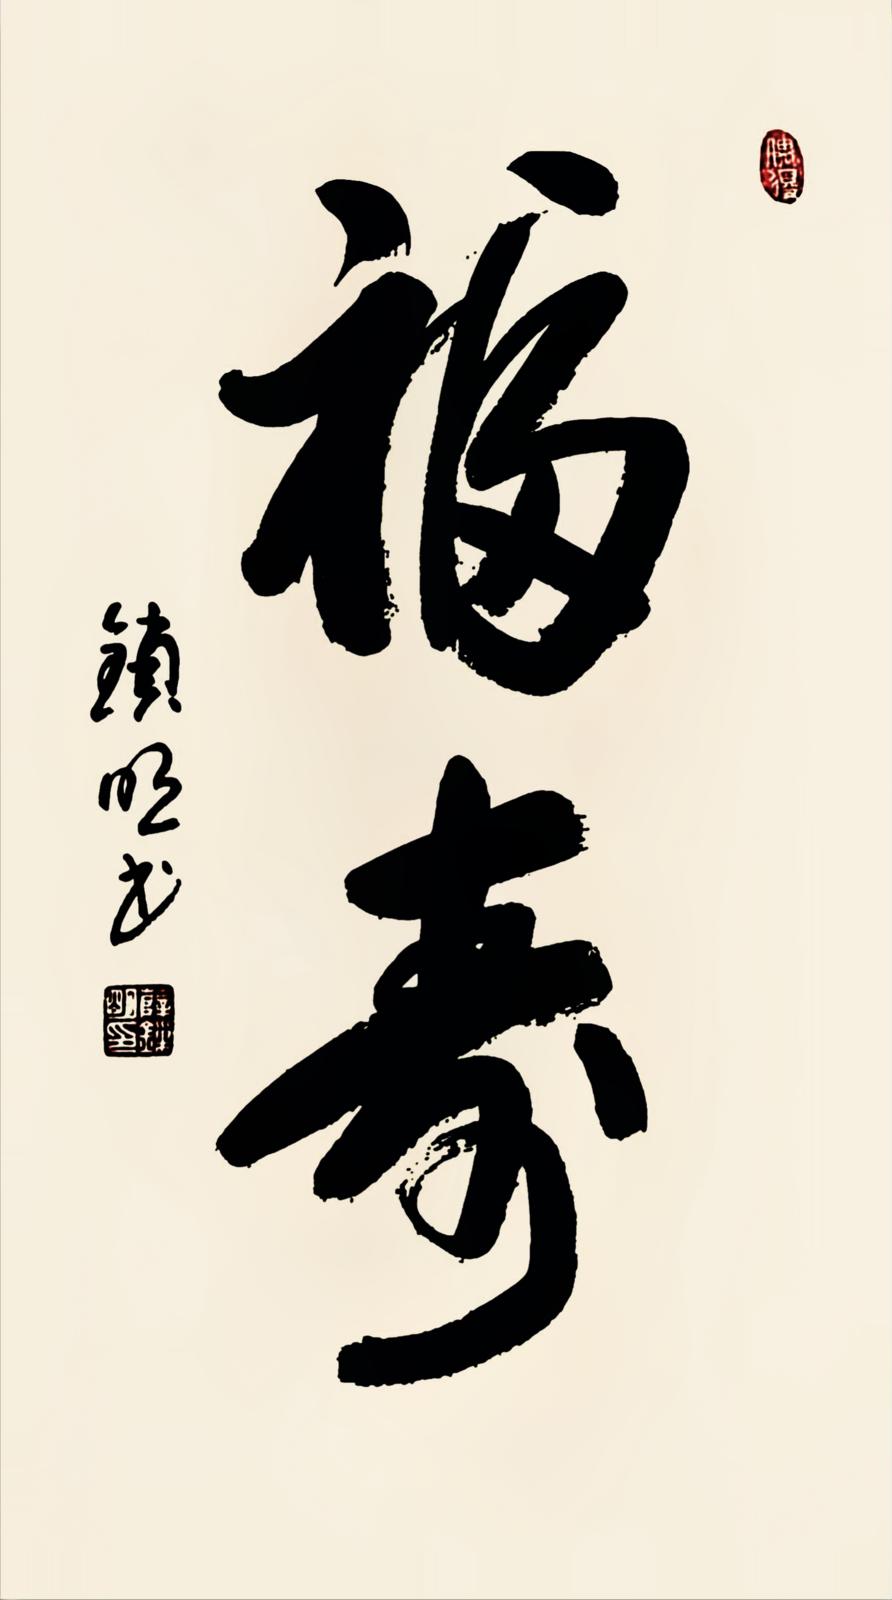 福寿
鎮明书